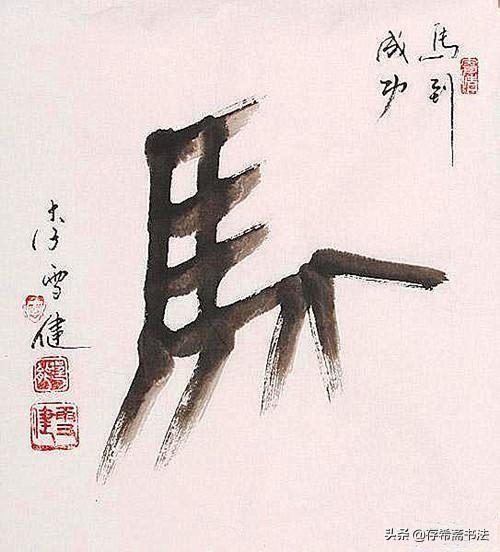 馬到
成功
馬
李雪健
雪健
头条 @存希斋书法